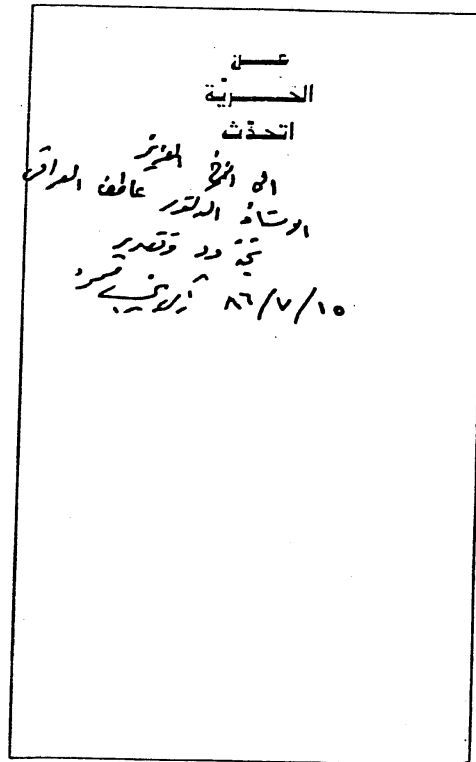 عن
الحريّة
اتحدّث
الى الأخ العزيز
الاستاذ الدكتور عاطف العراقى
تحية ود وتقدير
زكي نجيب محمود ١٥/٧/٨٦